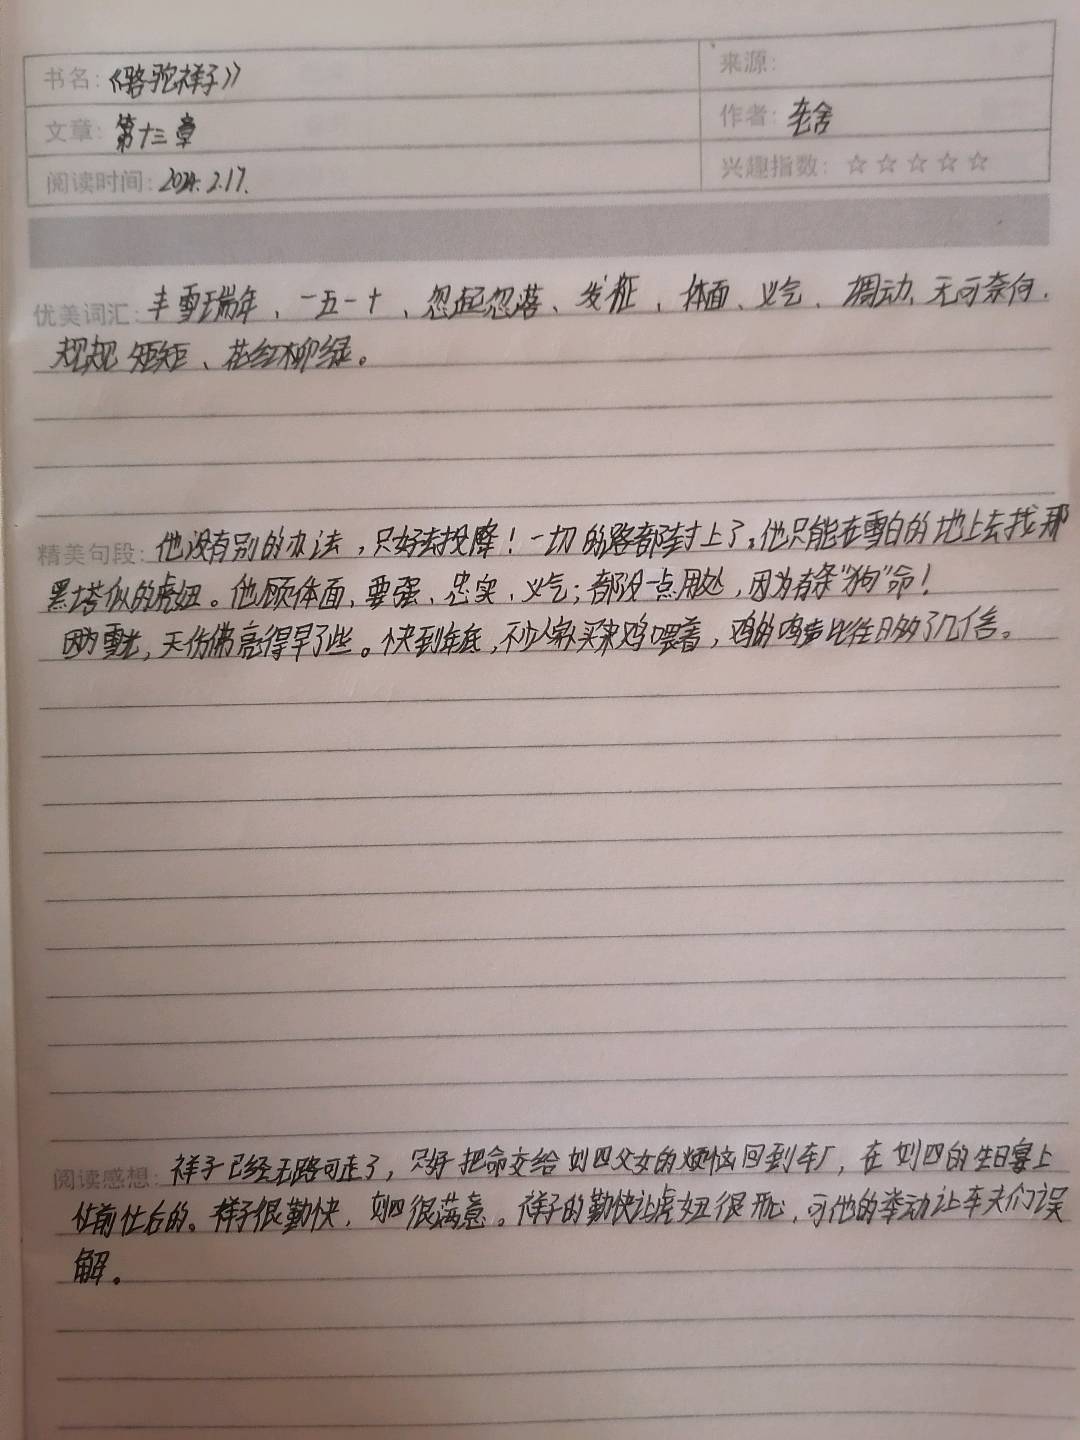 书名:《骆驼祥子》 来源:
文章: 第十三章 作者: 老舍
阅读时间: 2024.2.17. 兴趣指数: ☆☆☆☆☆
优美词汇: 丰雪瑞年、一五一十、忽起忽落、发怔、体面、义气、调动、无可奈何、
规规矩矩、花红柳绿。
精美句段: 他没有别的办法,只好去投降!一切的路都封上了,他只能在雪白的地上去找那
黑塔似的虎妞。他顾体面、要强、忠实、义气;都没一点用处,因为有条“狗”命!
因为雪光,天仿佛亮得早了些。快到年底,不少人家买来鸡喂着,鸡的鸣声比往日多了几倍。
阅读感想: 祥子已经无路可走了,只好把命交给刘四父女的烦恼回到车厂,在刘四的生日宴上
忙前忙后的。祥子很勤快,刘四很满意。祥子的勤快让虎妞很开心,可他的举动让车夫们误
解。